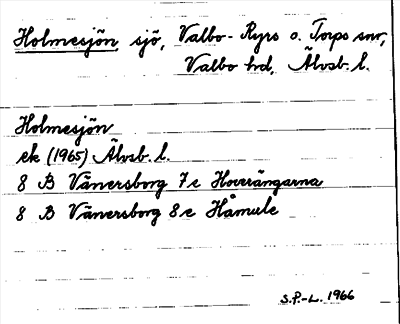 Holmesjön sjö, Valbo-Ryrs o. Torps snr,
Valbo hd, Älvsb. l.
Holmesjön
ek (1965) Älvsb. l.
8 B Vänersborg 7e Hoverängarna
8 B Vänersborg 8e Håmule
S.P.-L. 1966